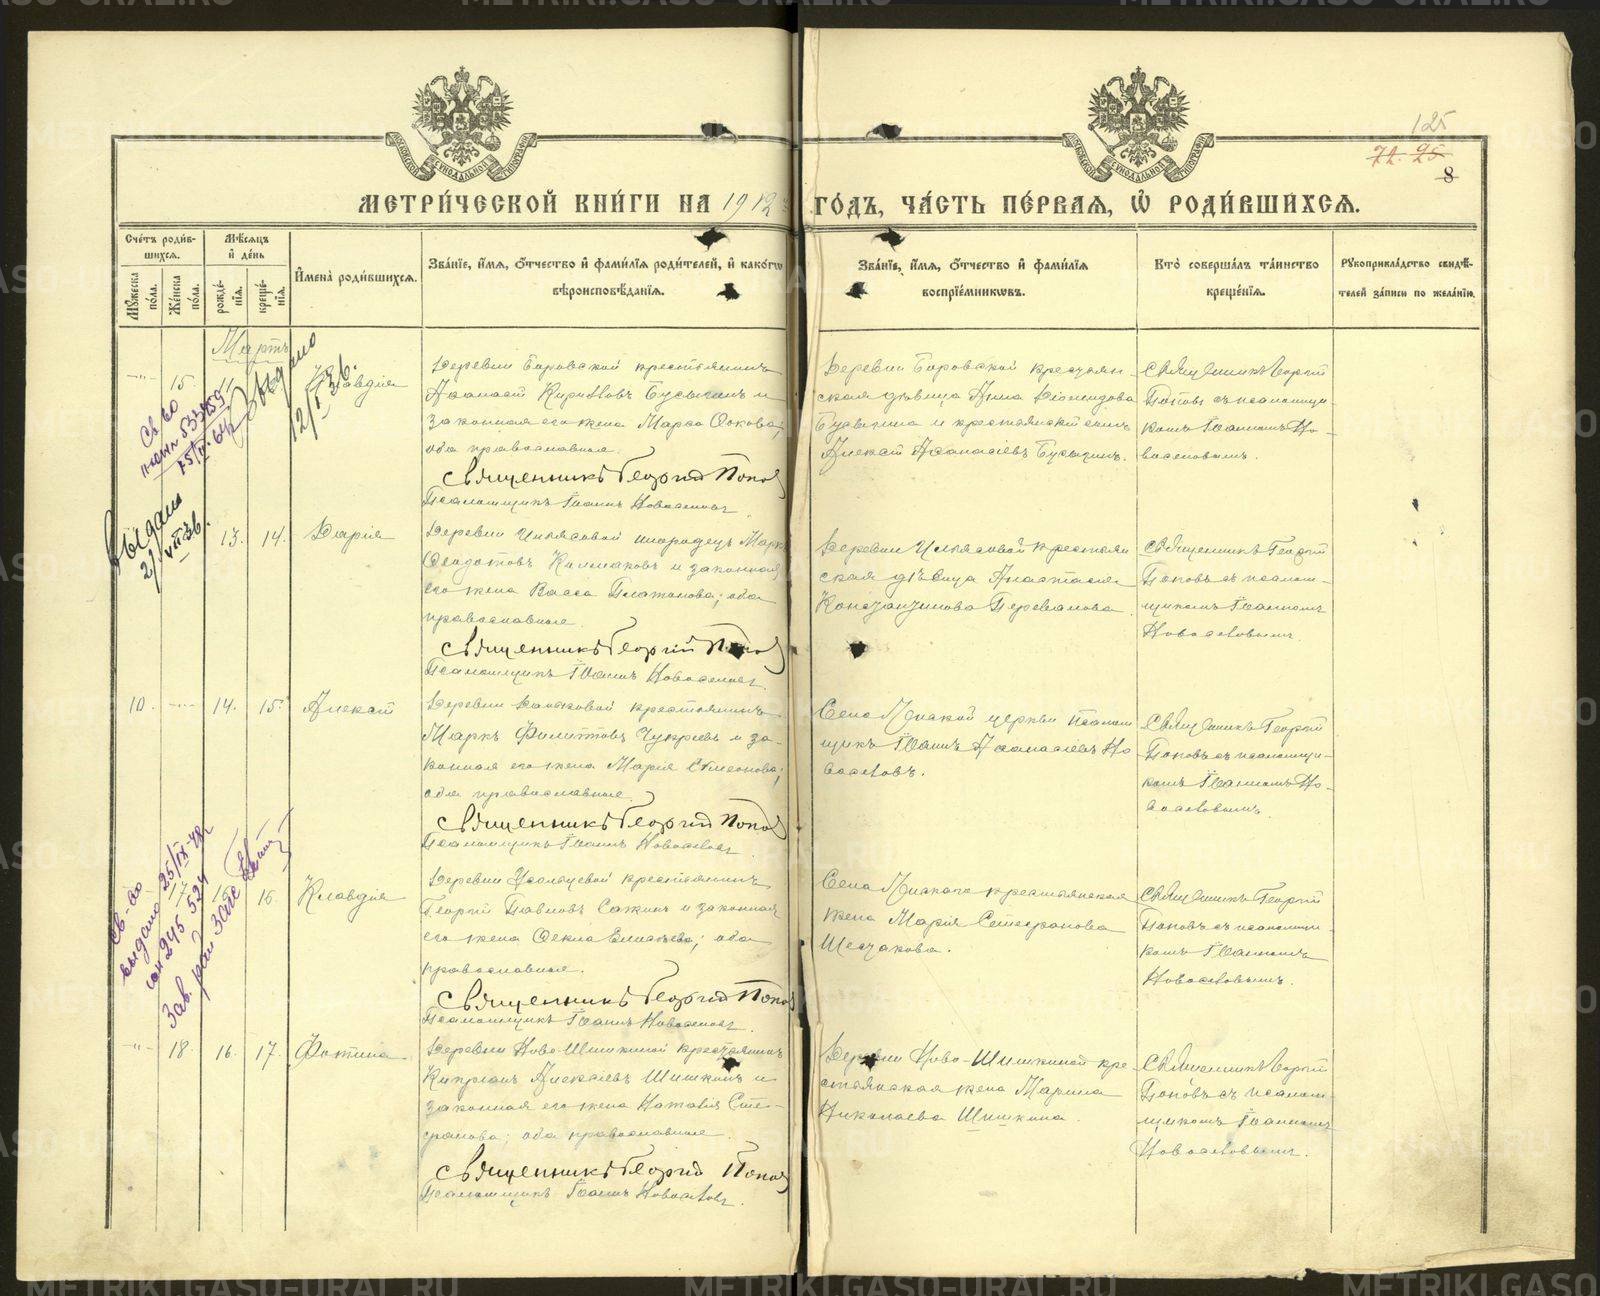 125
72. 25
8
МЕТРИЧЕСКОЙ КНИГИ НА 1912 ГОДЪ, ЧАСТЬ ПЕРВАЯ, Ѡ РОДИВШИХСЯ.
Счетъ родившихся.
Мужеска пола.
Женска пола.
Мѣсяцъ и день
рожденія.
крещенія.
Имена родившихся.
Званіе, имя, отчество и фамилія родителей, и какогѡ
вѣроисповѣданія.
Званіе, имя, отчество и фамилія
воспріемникѡвъ.
Кто совершалъ таинство
крещенія.
Рукоприкладство свидѣ-
телей записи по желанію.
Мартъ
15.
Клавдія
Деревни Боровской крестьянинъ
Аѳанасій Кирилловъ Бусыгинъ и
законная его жена Марѳа
оба православные.
Священникъ Георгій Попов
Псаломщикъ Іоаннъ Новоселовъ.
Деревни Боровской крестьян-
ская дѣвица Анна
Бусыгина и крестьянскій сынъ
Алексій Аѳанасіевъ Бусыгинъ.
Священникъ Георгій
Поповъ съ псаломщи-
комъ Іоанномъ Но-
воселовымъ.
Выдано
12/I 36.
Выдано
2/VII 36.
13. 14.
Дарія
Деревни инородецъ Маркъ
Ѳеодотовъ и законная
его жена Васса Платонова; оба
православные.
Священникъ Георгій Попов
Псаломщикъ Іоаннъ Новоселовъ.
Деревни крестьян-
ская дѣвица Анастасія
Константинова Перевалова.
Священникъ Георгій
Поповъ съ псалом-
щикомъ Іоанномъ
Новоселовымъ.
10. 14. 15.
Алексій
Деревни крестьянинъ
Маркъ Филипповъ Чукреевъ и за-
конная его жена Марія Симеонова;
оба православные.
Священникъ Георгій Попов
Псаломщикъ Іоаннъ Новоселовъ.
Села церкви псалом-
щикъ Іоаннъ Аѳанасіевъ Но-
воселовъ.
Священникъ Георгій
Поповъ съ псаломщи-
комъ Іоанномъ Но-
воселовымъ.
Св-во
выдано 25/IX-48
245524
Зав. рай Загс
17. 16.
Клавдія
Деревни Усольцевой крестьянинъ
Георгій Павловъ Сажинъ и законная
его жена Ѳекла Елисѣева; оба
православные.
Священникъ Георгій Попов
Псаломщикъ Іоаннъ Новоселовъ.
Села крестьянская
жена Марія Стефанова
Шестакова.
Священникъ Георгій
Поповъ съ псаломщи-
комъ Іоанномъ
Новоселовымъ.
18. 16. 17.
Фотина
Деревни Ново-Шишкиной крестьянинъ
Кипріанъ Алексіевъ Шишкинъ и
законная его жена Наталія Сте-
фанова; оба православные.
Священникъ Георгій Попов
Псаломщикъ Іоаннъ Новоселовъ.
Деревни Ново-Шишкиной кре-
стьянская жена Марина
Николаева Шишкина.
Священникъ Георгій
Поповъ съ псалом-
щикомъ Іоанномъ
Новоселовымъ.
METRIKI.GASO-URAL.RU